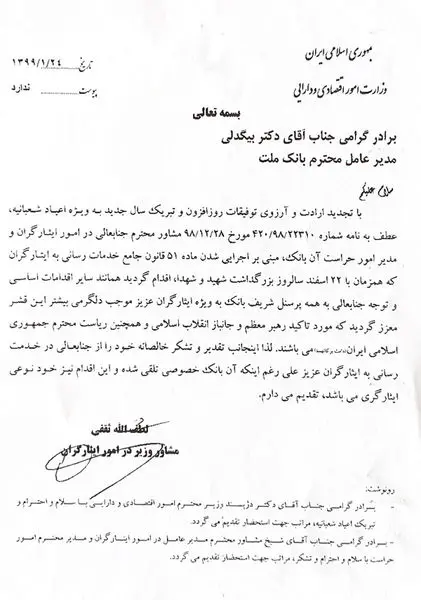 جمهوری اسلامی ایران
تاریخ ۱۳۹۹/۱/۲۴
وزارت امور اقتصادی و دارایی
پیوست ندارد
بسمه تعالی
برادر گرامی جناب آقای دکتر بیگدلی
مدیر عامل محترم بانک ملت
سلام علیکم
با تجدید ارادت و آرزوی توفیقات روزافزون و تبریک سال جدید به ویژه اعیاد شعبانیه،
عطف به نامه شماره ۴۲۰/۹۸/۲۲۳۱۰ مورخ ۹۸/۱۲/۲۸ مشاور محترم جنابعالی در امور ایثارگران و
مدیر امور حراست آن بانک، مبنی بر اجرایی شدن ماده ۵۱ قانون جامع خدمات رسانی به ایثارگران
که همزمان با ۲۲ اسفند سالروز بزرگداشت شهید و شهدا، اقدام گردید همانند سایر اقدامات اساسی
و توجه جنابعالی به همه پرسنل شریف بانک به ویژه ایثارگران عزیز موجب دلگرمی بیشتر این قشر
معزز گردید که مورد تاکید رهبر معظم و جانباز انقلاب اسلامی و همچنین ریاست محترم جمهوری
اسلامی ایران می باشند. لذا اینجانب تقدیر و تشکر خالصانه خود را از جنابعالی در خدمت
رسانی به ایثارگران عزیز علی رغم اینکه آن بانک خصوصی تلقی شده و این اقدام نیز خود نوعی
ایثارگری می باشد، تقدیم می دارم.
لطف الله ثقفی
مشاور وزیر در امور ایثارگران
رونوشت:
- برادر گرامی جناب آقای دکتر دژپسند وزیر محترم امور اقتصادی و دارایی با سلام و احترام و
تبریک اعیاد شعبانیه، مراتب جهت استحضار تقدیم می گردد.
- برادر گرامی جناب آقای شیخ مشاور محترم مدیر عامل در امور ایثارگران و مدیر محترم امور
حراست با سلام و احترام و تشکر، مراتب جهت استحضار تقدیم می گردد.